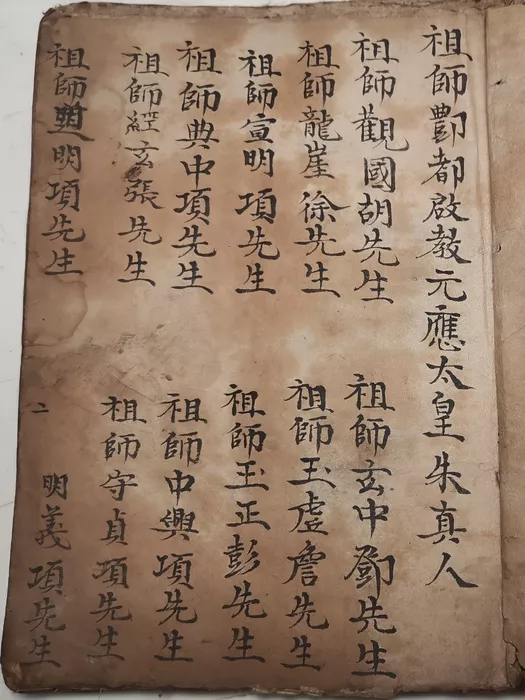 祖師酆都啟教元應太皇朱真人
祖師觀國胡先生
祖師玄中鄧先生
祖師龍崖徐先生
祖師玉虛詹先生
祖師宣明項先生
祖師玉正彭先生
祖師典中項先生
祖師中興項先生
祖師經玄張先生
祖師守貞項先生
祖師明項先生
二 明義項先生